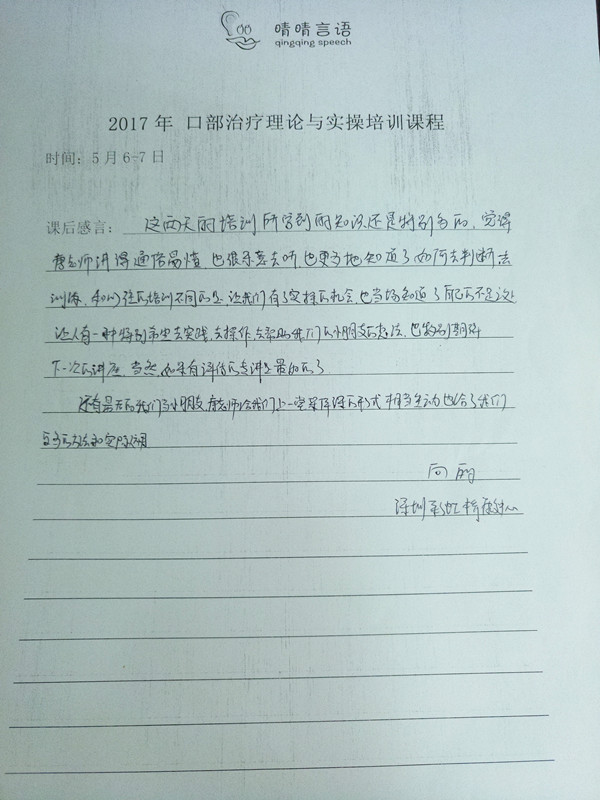 晴晴言语
qingqing speech
2017 年 口部治疗理论与实操培训课程
时间：5 月 6-7 日
课后感言： 这两天的培训所学到的知识还是特别多的，觉得
老师讲得通俗易懂，也很乐意去听，也更多地知道了如何去判断去
训练，和以往的培训不同的是，让我们有了实操的机会，也当场知道了自己的不足之处
让人有一种特别希望去实践，去操作，去帮助我们的小朋友的想法，也特别期待
下一次的讲座，当然，如果有评估的专讲是最好的了
还有是把我们当小朋友，老师给我们上一堂课的形式相当生动也给了我们
更多的方法和实际
向
深圳彩虹